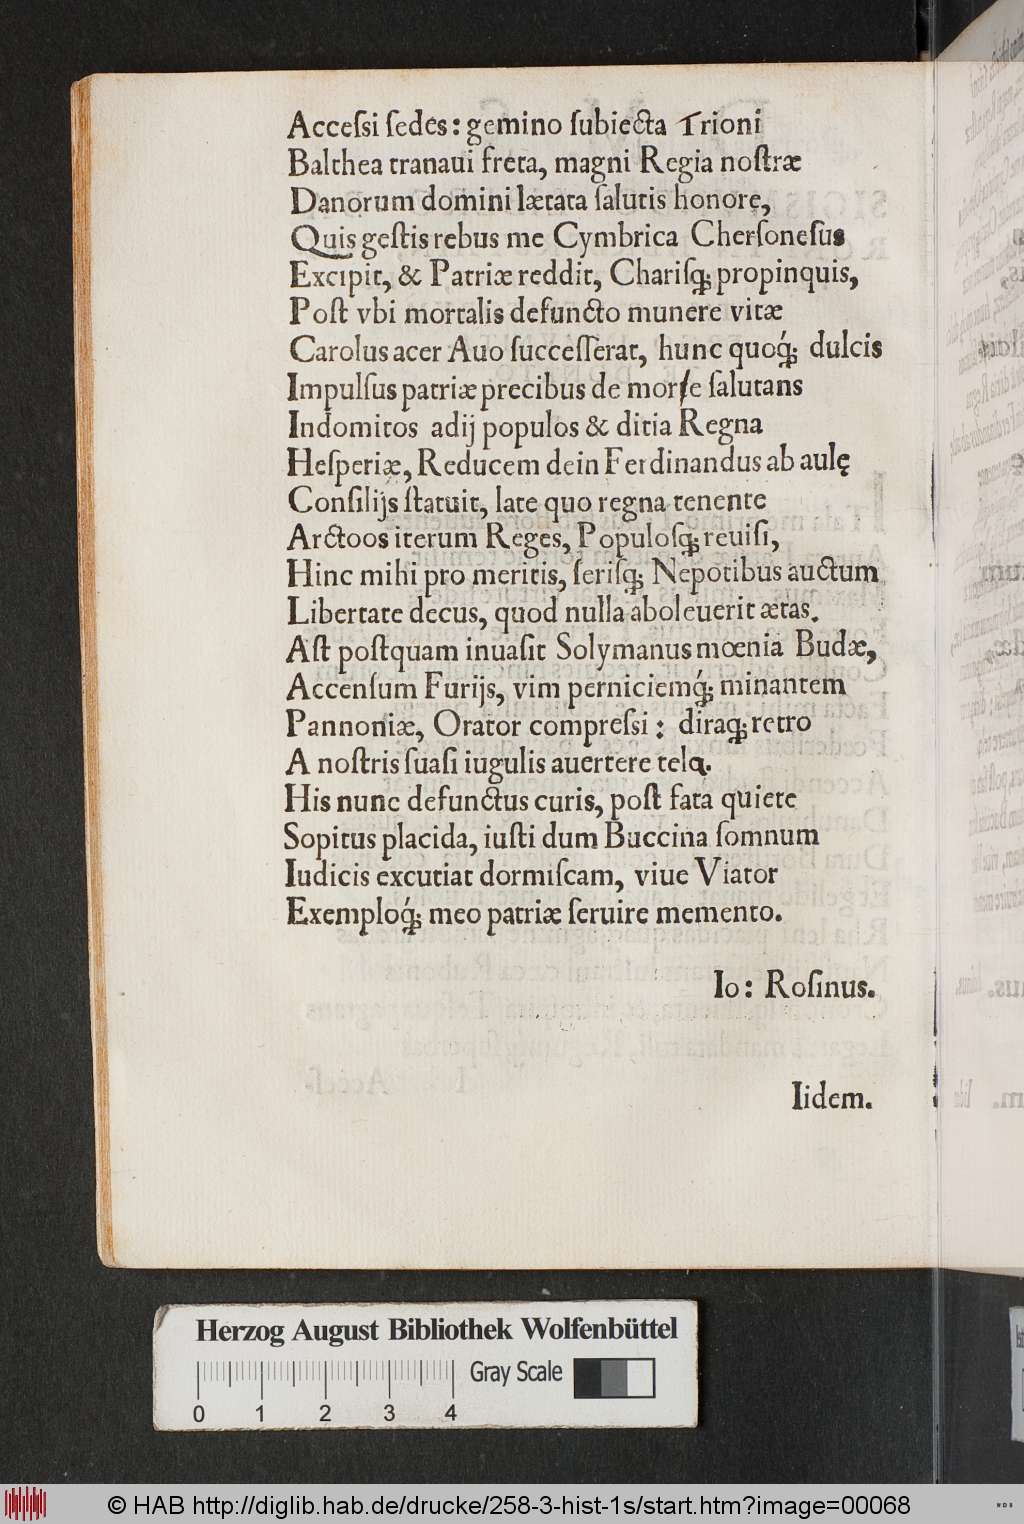 Acceſsi ſedes: gemino ſubiecta Trioni
Balthea tranaui freta, magni Regia noſtræ
Danorum domini lætata ſalutis honore,
Quis geſtis rebus me Cymbrica Cherſoneſus
Excipit, & Patriæ reddit, Chariſq; propinquis,
Poſt vbi mortalis defuncto munere vitæ
Carolus acer Auo ſucceſſerat, hunc quoq́; dulcis
Impulſus patriæ precibus de more ſalutans
Indomitos adij populos & ditia Regna
Heſperiæ, Reducem dein Ferdinandus ab aulę
Conſilijs ſtatuit, late quo regna tenente
Arctoos iterum Reges, Populoſq; reuiſi,
Hinc mihi pro meritis, ſeriſq; Nepotibus auctum
Libertate decus, quod nulla aboleuerit ætas.
Aſt poſtquam inuaſit Solymanus mœnia Budæ,
Accenſum Furijs, vim perniciemq́; minantem
Pannoniæ, Orator compreſsi: diraq; retro
A noſtris ſuaſi iugulis auertere tela.
His nunc defunctus curis, poſt fata quiete
Sopitus placida, iuſti dum Buccina ſomnum
Iudicis excutiat dormiſcam, viue Viator
Exemploq́; meo patriæ ſeruire memento.
Io: Roſinus.
Iidem.
Herzog August Bibliothek Wolfenbüttel
Gray Scale
0 1 2 3 4
© HAB http://diglib.hab.de/drucke/258-3-hist-1s/start.htm?image=00068